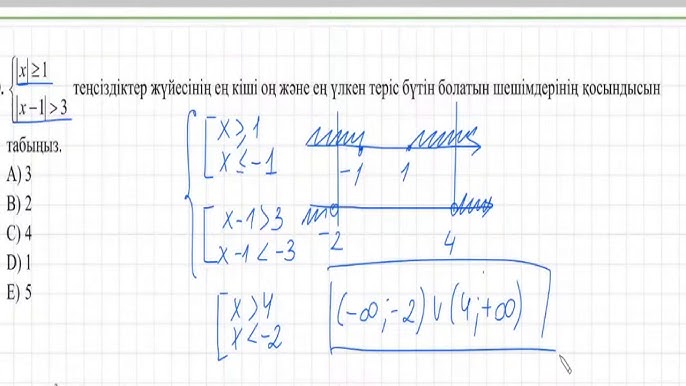 {|x| ≥ 1
{|x − 1| > 3
теңсіздіктер жүйесінің ең кіші оң және ең үлкен теріс бүтін болатын шешімдерінің қосындысын
табыңыз.
A) 3
B) 2
C) 4
D) 1
E) 5
x ≥ 1
x ≤ −1
x − 1 > 3
x − 1 < −3
x > 4
x < −2
−1 1
−2 4
(−∞; −2) ∪ (4; +∞)